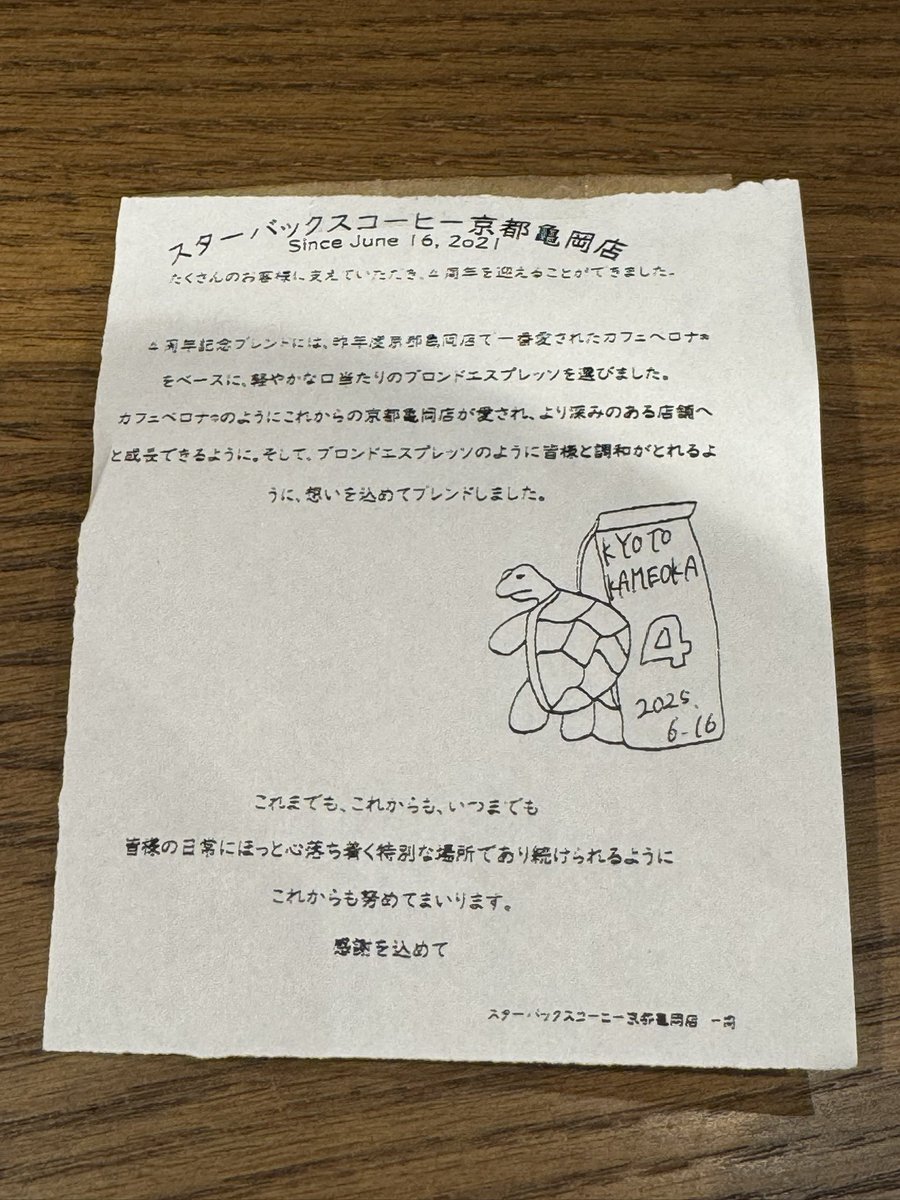 スターバックスコーヒー京都亀岡店
Since June 16, 2021
たくさんのお客様に支えていただき、4周年を迎えることができました。
4周年記念ブレンドには、昨年度京都亀岡店で一番愛されたカフェベロナ®
をベースに、軽やかな口当たりのブロンドエスプレッソを選びました。
カフェベロナ®のようにこれからの京都亀岡店が愛され、より深みのある店舗へ
と成長できるように。そして、ブロンドエスプレッソのように皆様と調和がとれるよ
うに、想いを込めてブレンドしました。
KYOTO
KAMEOKA
4
2025.
6-16
これまでも、これからも、いつまでも
皆様の日常にほっと心落ち着く特別な場所であり続けられるように
これからも努めてまいります。
感謝を込めて
スターバックスコーヒー京都亀岡店 一同